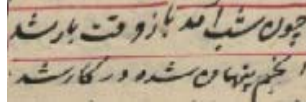 چون شب آمد باز وقت بار شد
انجم پنهان شده در کار شد